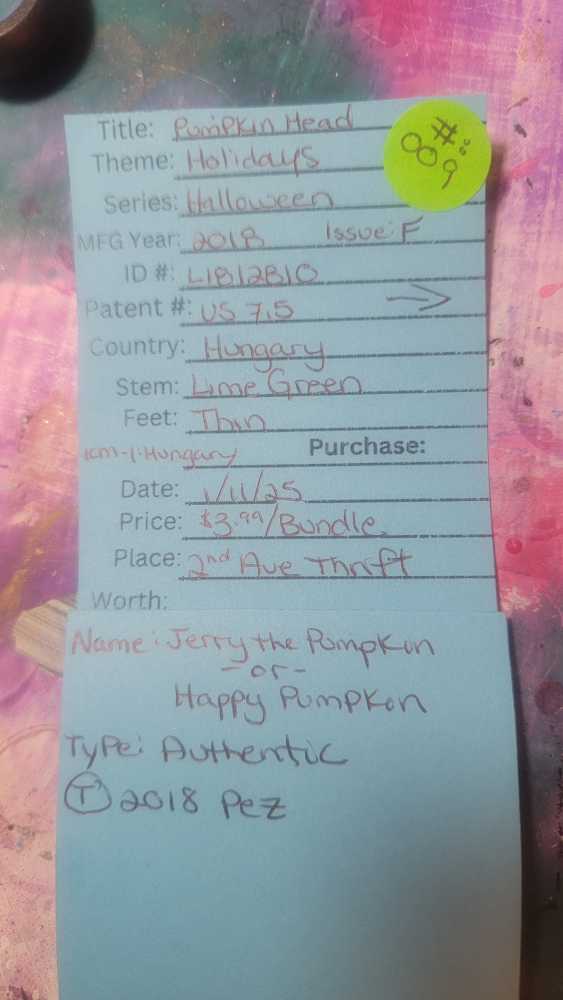 Title: Pumpkin Head
#:
809
Theme: Holidays
Series: Halloween
MFG Year: 2018 Issue: F
ID #: L1812B10
Patent #: US 7.5 →
Country: Hungary
Stem: Lime Green
Feet: Thin
ICM-1-Hungary Purchase:
Date: 1/11/25
Price: $3.99/Bundle
Place: 2nd Ave Thrift
Worth:
Name: Jerry the Pumpkin
- or -
Happy Pumpkin
Type: Authentic
Ⓣ 2018 Pez